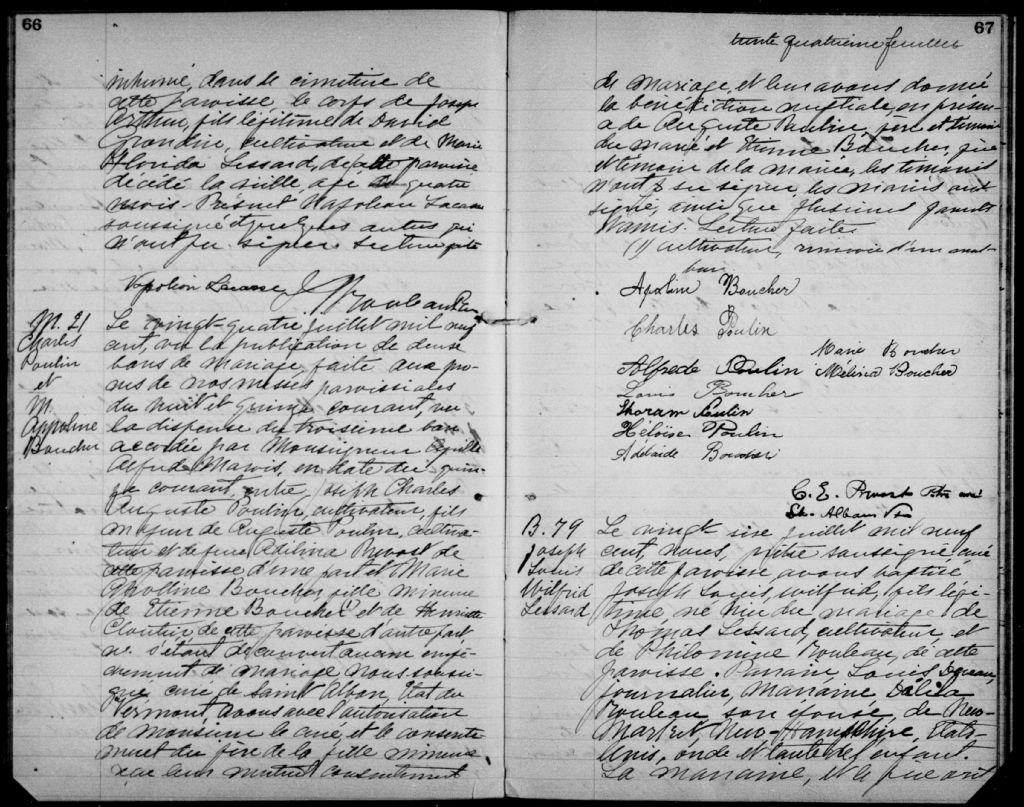 66
inhumé, dans le cimetière de
cette paroisse, le corps de Joseph
Arthur, fils légitime de David
Grondin, cultivateur et de Marie
Florida Lessard, de cette paroisse
décédé la veille, agé de quatre
mois. Présent Napoléon Lacasse
soussigné et quelques autres qui
n'ont pu signer. Lecture faite
Napoléon Lacasse J Rouleau Ptre
M. 21
Charles
Poulin
et
M.
Appoline
Boucher
Le vingt-quatre juillet mil neuf
cent, vu la publication de deux
bans de mariage faite aux prô-
nes de nos messes paroissiales
du huit et quinze courant, vu
la dispense du troisième ban
accordée par Monseigneur Cyrille
Alfred Marois, en date du quin-
ze courant, entre Joseph Charles
Auguste Poulin, cultivateur, fils
majeur de Auguste Poulin, cultiva-
teur et de feue Adelina Provost de
cette paroisse d'une part et Marie
Apolline Boucher, fille mineure
de Etienne Boucher et de Henriette
Cloutier de cette paroisse d'autre part
n. s'étant découvert aucun empê-
chement de mariage nous soussi-
gné curé de Saint Alban, Etat du
Vermont, avons avec l'autorisation
de monsieur le curé, et le consente-
ment du père de la fille mineure
reçu leur mutuel consentement
67
trente quatrième feuillet
de mariage, et leur avons donné
la bénédiction nuptiale, en présen-
ce de Auguste Poulin, père et témoin
du marié et Etienne Boucher, père
et témoin de la mariée, les témoins
n'ont pu signer les mariés ont
signé, ainsi que plusieurs parents
& amis. Lecture faite
(1) cultivateur, renvoi d'un mot
bon
Apoline Boucher
Charles Poulin
Marie Boucher
Alfrede Poulin Mélina Boucher
Louis Boucher
Poulin
Héloïse Poulin
Adelaide Boucher
C. E. Provost Ptre curé
St. Alban Vt
B. 79
Joseph
Louis
Wilfrid
Lessard
Le vingt juillet mil neuf
cent, nous, prêtre soussigné curé
de cette paroisse, avons baptisé
Joseph Louis, Wilfrid, fils légi-
time, né hier du mariage de
Thomas Lessard, cultivateur, et
de Philomine Rouleau, de cette
paroisse. Parrain, Louis
journalier, Marraine Délia
Rouleau, son épouse, de New-
Market, New-Hampshire, Etats-
Unis, oncle et tante de l'enfant.
La marraine, et le père ont